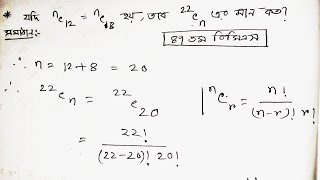 * যদি ⁿC₁₂ = ⁿC₈ হয়, তবে ²²Cₙ এর মান কত?
সমাধান:- ৪১ তম বিসিএস
∴ n = 12 + 8 = 20
∴ ²²Cₙ = ²²C₂₀ | ⁿCᵣ = n! / (n-r)! r!
= 22! / (22-20)! 20!